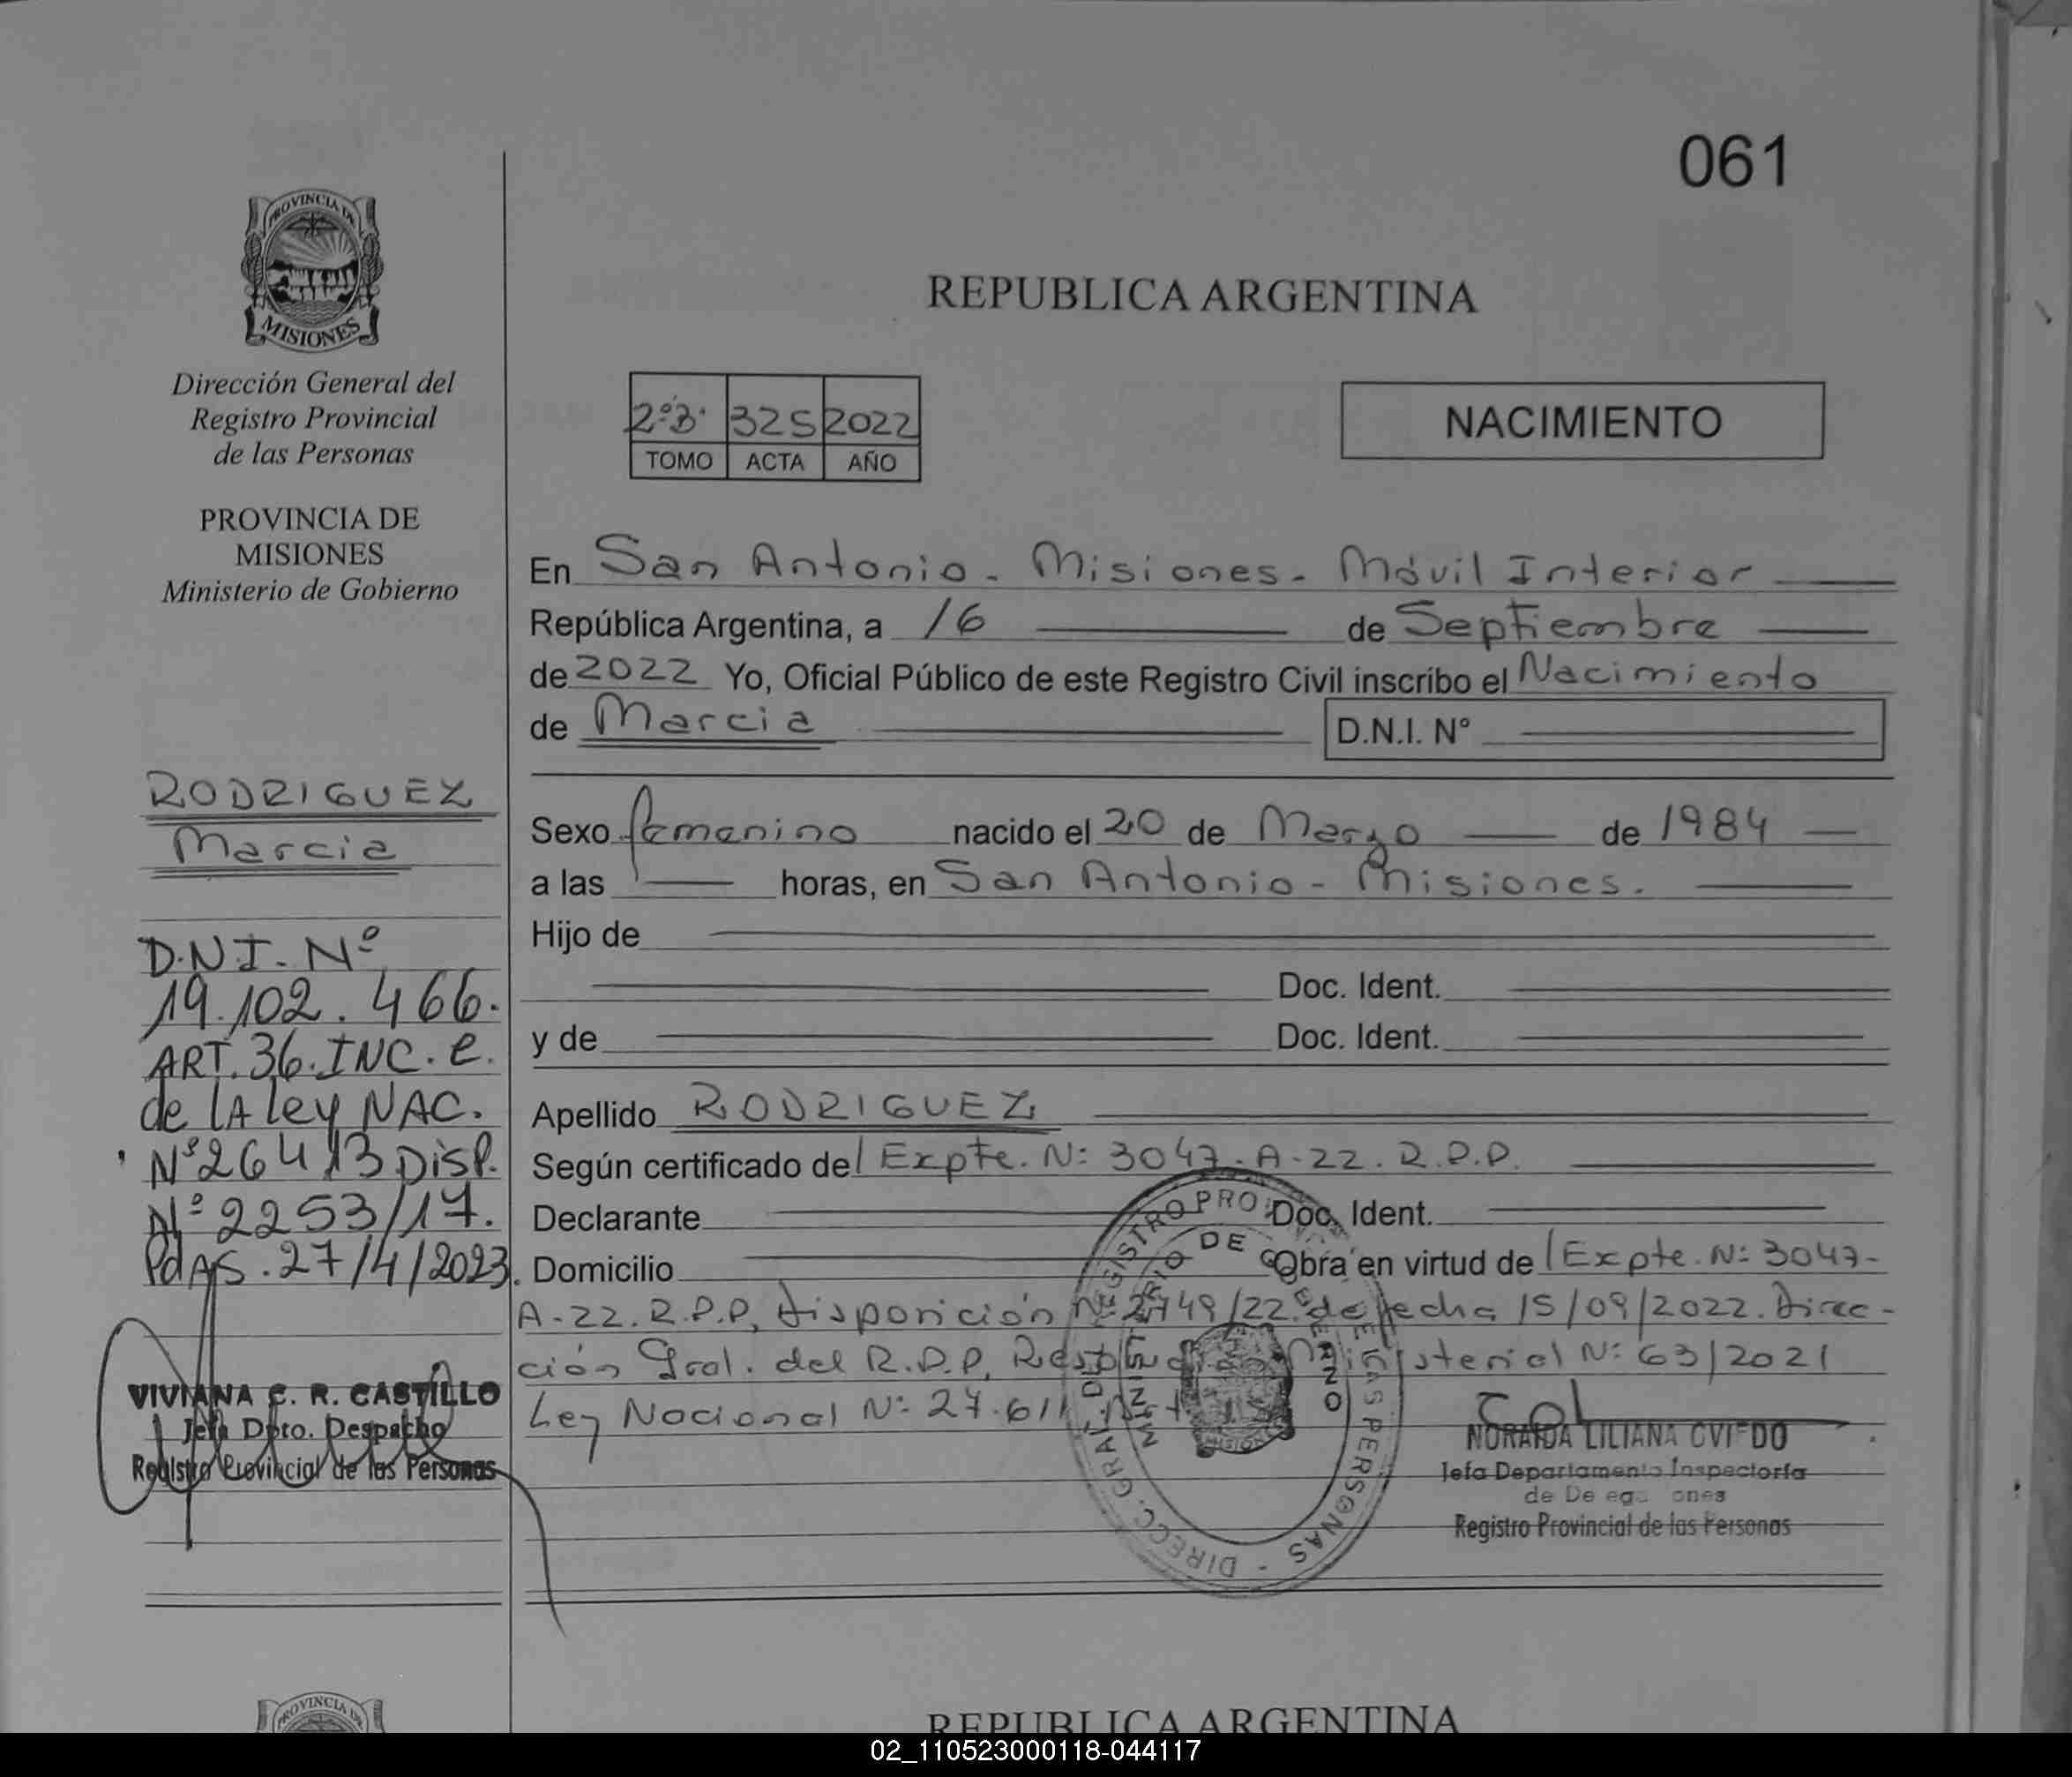 061
PROVINCIA DE
MISIONES
Dirección General del
Registro Provincial
de las Personas
PROVINCIA DE
MISIONES
Ministerio de Gobierno
RODRIGUEZ
Marcia
D.N.I. Nº
19.102.466.
ART. 36. INC. e.
de LA Ley NAC.
Nº 26413 DISP.
Nº 2253/17.
PdAS. 27/4/2023.
VIVIANA C. R. CASTILLO
Jefa Dpto. Despacho
Registro Provincial de las Personas
REPUBLICA ARGENTINA
2ºB. 325 2022
TOMO ACTA AÑO
NACIMIENTO
En San Antonio - Misiones - Móvil Interior
República Argentina, a 16 de Septiembre
de 2022 Yo, Oficial Público de este Registro Civil inscribo el Nacimiento
de Marcia D.N.I. Nº
Sexo femenino nacido el 20 de Marzo de 1984
a las horas, en San Antonio - Misiones.
Hijo de
Doc. Ident.
y de Doc. Ident.
Apellido RODRIGUEZ
Según certificado del Expte. Nº 3047-A-22. R.P.P.
Declarante Doc. Ident.
Domicilio Obra en virtud de Expte. Nº 3047-
A-22. R.P.P, disposición Nº 2749/22 de fecha 15/09/2022. Direc-
ción Gral. del R.P.P, Ministerial Nº 63/2021
Ley Nacional Nº 27.611
DIRECC. GRAL. DEL REGISTRO PROV. DE LAS PERSONAS
MINISTERIO DE GOBIERNO
NORAIDA LILIANA OVIEDO
Jefa Departamento Inspectoría
de
Registro Provincial de las Personas
PROVINCIA DE
REPUBLICA ARGENTINA
02_110523000118-044117